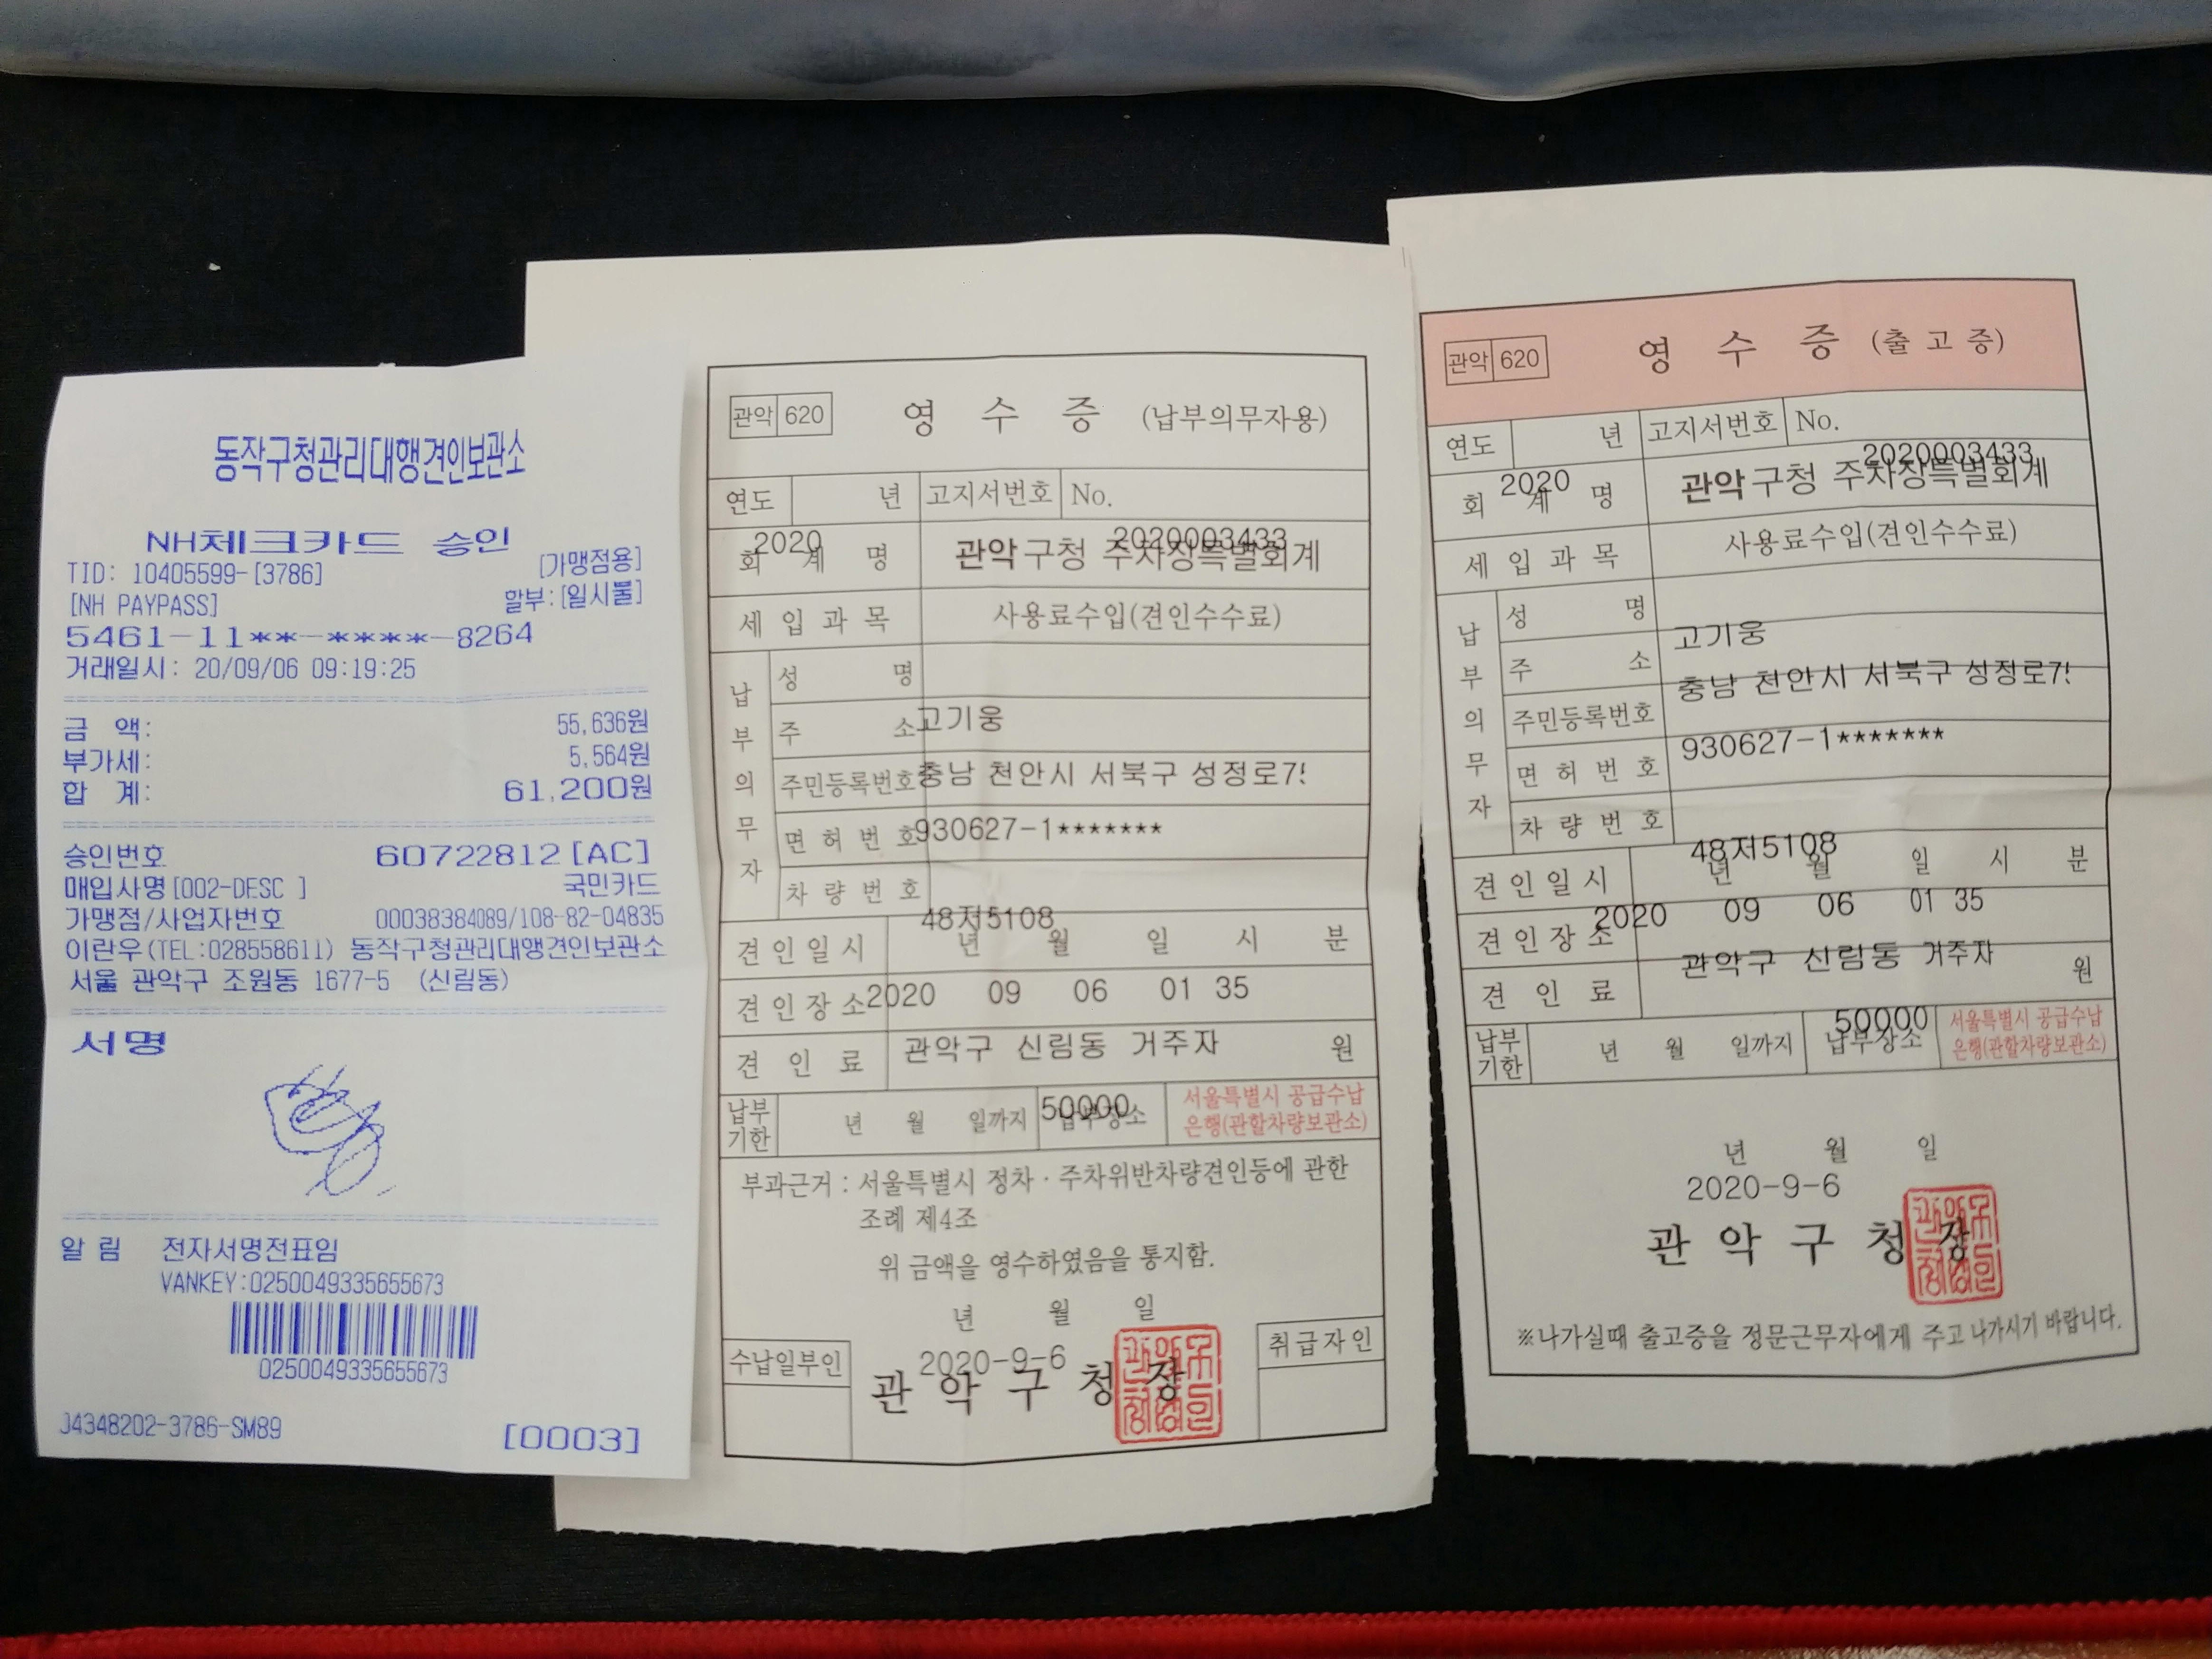 동작구청관리대행견인보관소
NH체크카드 승인
TID: 10405599-[3786] [가맹점용]
[NH PAYPASS] 할부:[일시불]
5461-11**-****-8264
거래일시: 20/09/06 09:19:25
금 액: 55,636원
부가세: 5,564원
합 계: 61,200원
승인번호 60722812[AC]
매입사명[002-DESC ] 국민카드
가맹점/사업자번호 00038384089/108-82-04835
이란우(TEL:028558611) 동작구청관리대행견인보관소
서울 관악구 조원동 1677-5 (신림동)
서명
알 림 전자서명전표임
VANKEY:0250049335655673
0250049335655673
J4348202-3786-SM89 [0003]
관악 620 영 수 증 (납부의무자용)
연도 년 고지서번호 No.
2020 2020003433
회 계 명 관악구청 주차장특별회계
세 입 과 목 사용료수입(견인수수료)
납부의무자
성 명
고기웅
주 소
충남 천안시 서북구 성정로7
주민등록번호
930627-1*******
면 허 번 호
차 량 번 호
48저5108
견 인 일 시 년 월 일 시 분
2020 09 06 01 35
견 인 장 소
관악구 신림동 거주자
견 인 료 원
50000
납부기한 년 월 일까지 납부장소 서울특별시 공급수납
은행(관할차량보관소)
부과근거 : 서울특별시 정차·주차위반차량견인등에 관한
조례 제4조
위 금액을 영수하였음을 통지함.
년 월 일
2020-9-6
수납일부인 관 악 구 청 장 취급자인
관악 620 영 수 증 (출 고 증)
연도 년 고지서번호 No.
2020 2020003433
회 계 명 관악구청 주차장특별회계
세 입 과 목 사용료수입(견인수수료)
납부의무자
성 명
고기웅
주 소
충남 천안시 서북구 성정로7
주민등록번호
930627-1*******
면 허 번 호
차 량 번 호
48저5108
견 인 일 시 년 월 일 시 분
2020 09 06 01 35
견 인 장 소
관악구 신림동 거주자
견 인 료 원
50000
납부기한 년 월 일까지 납부장소 서울특별시 공급수납
은행(관할차량보관소)
년 월 일
2020-9-6
관 악 구 청 장
※나가실때 출고증을 정문근무자에게 주고 나가시기 바랍니다.